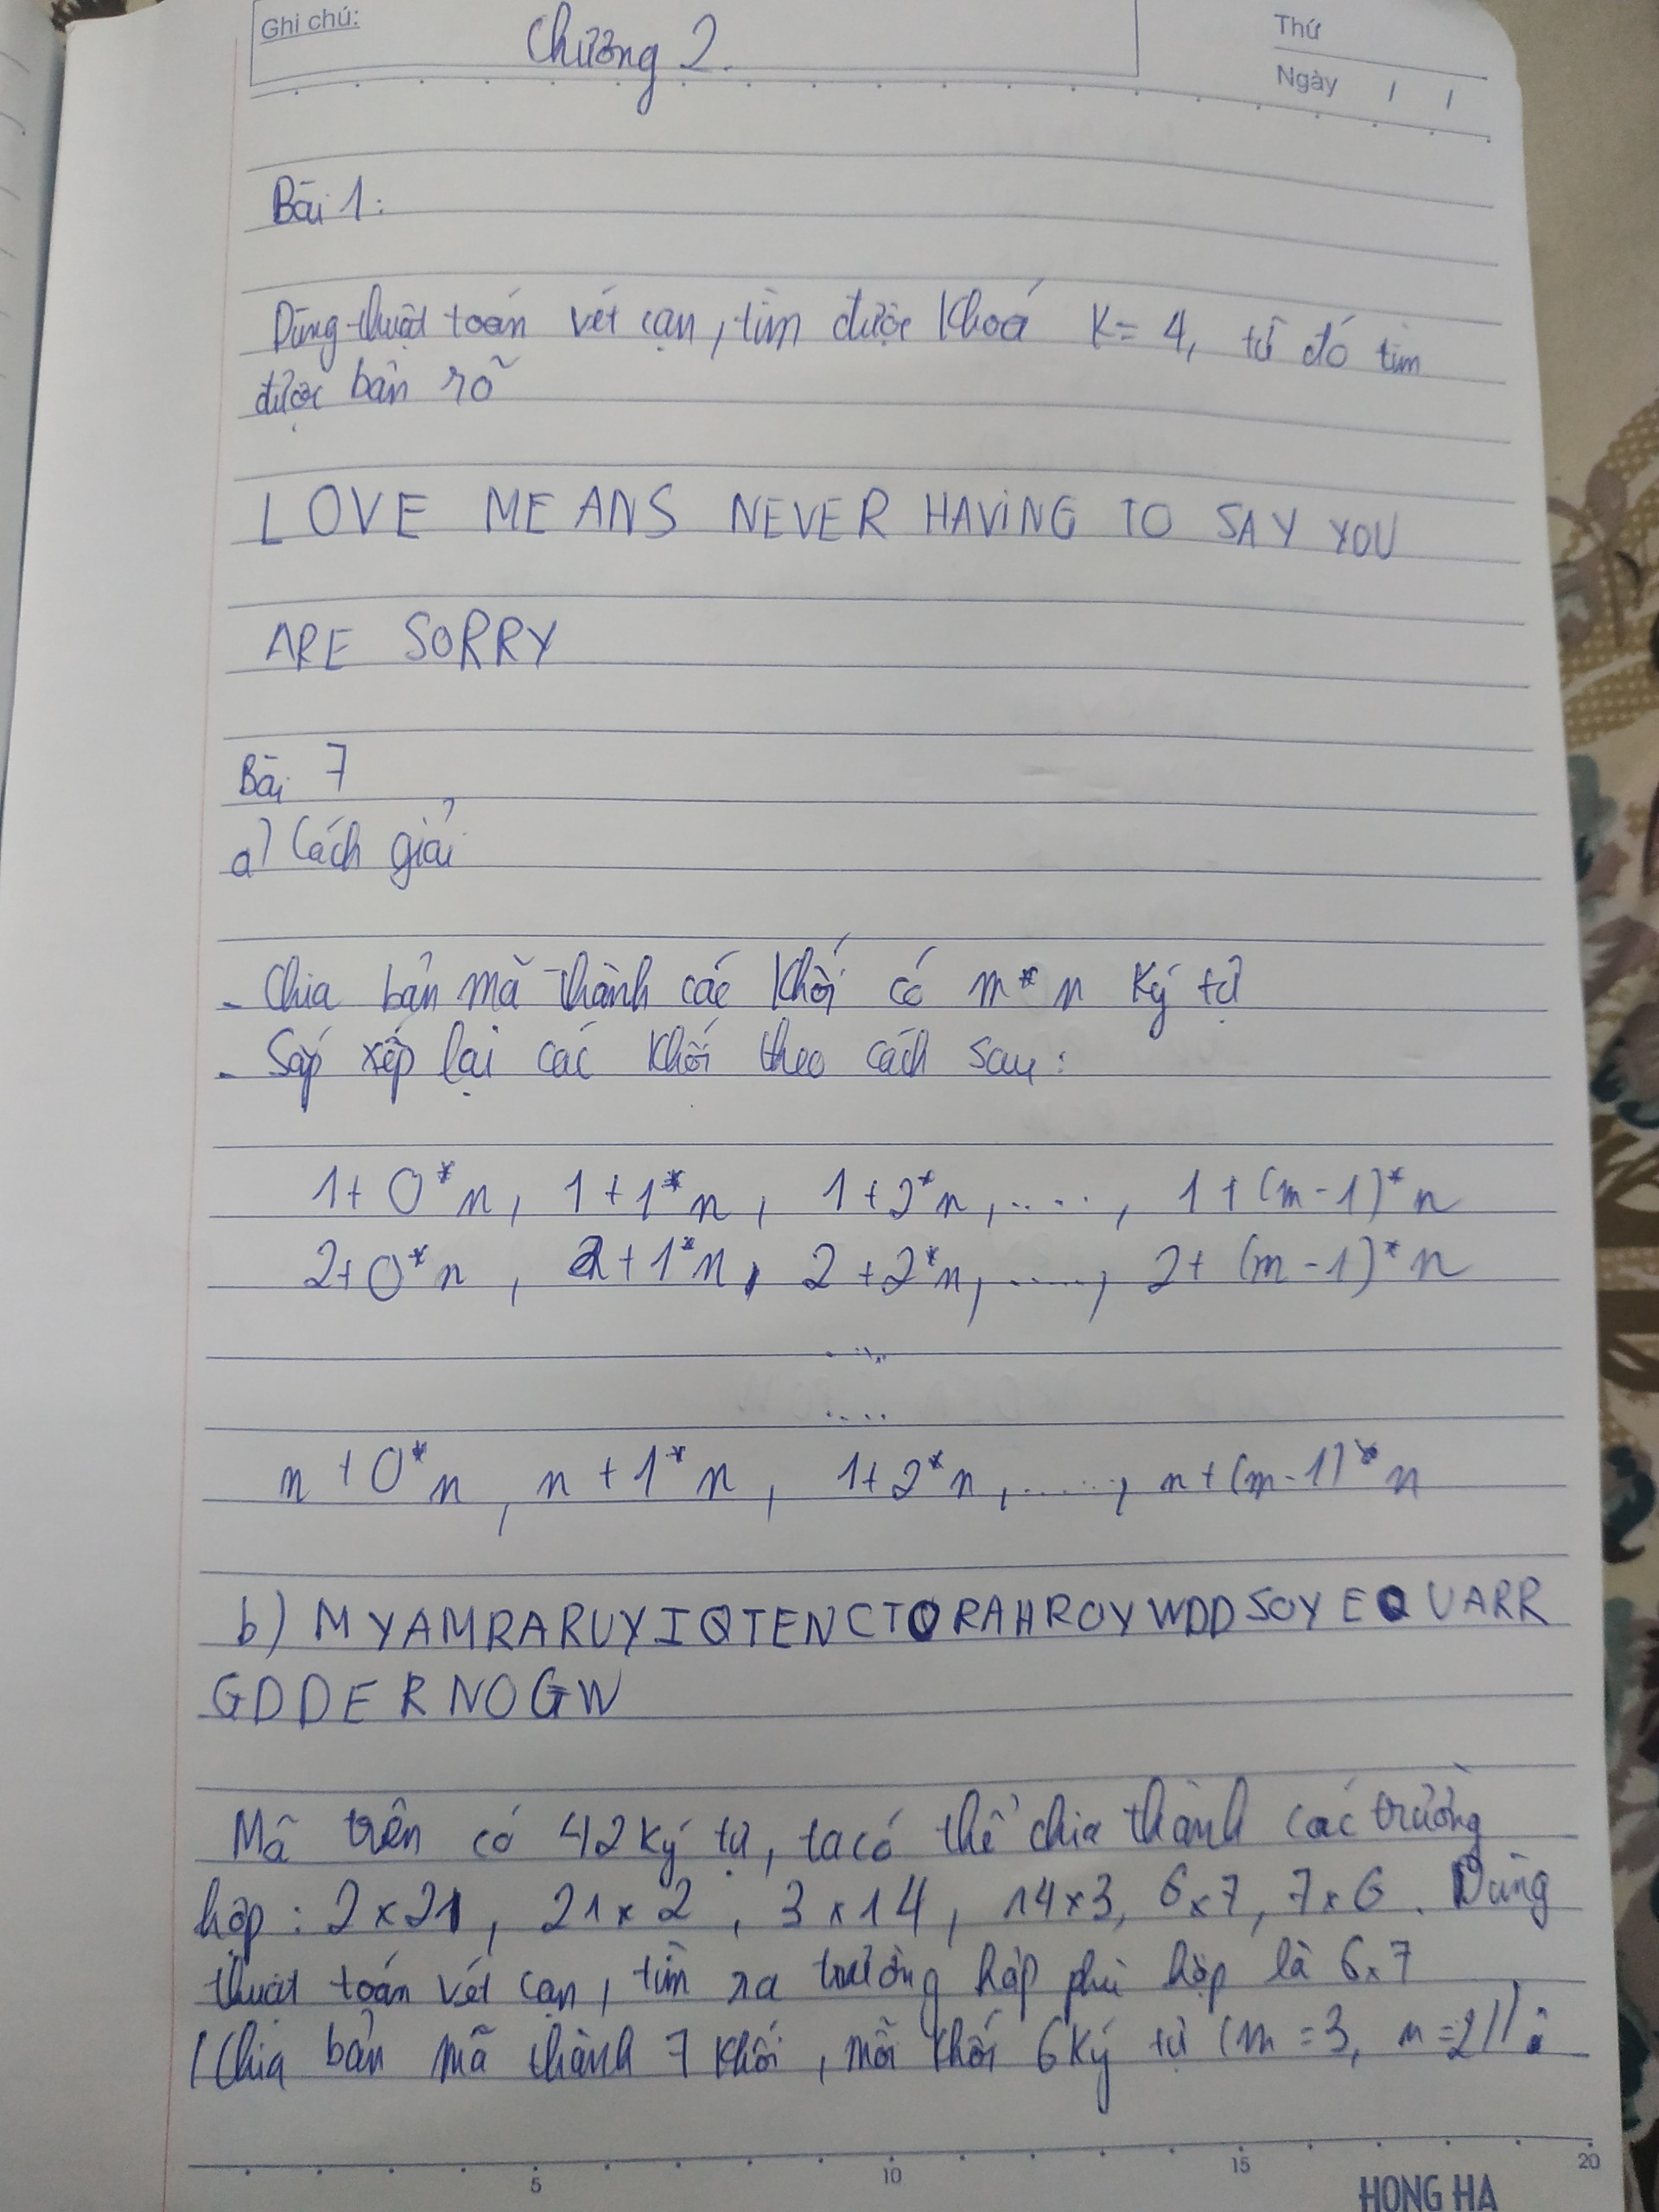 Ghi chú:
Chương 2.
Thứ
Ngày / /
Bài 1:
Dùng thuật toán vét cạn, tìm được khoá K = 4, từ đó tìm
được bản rõ
LOVE MEANS NEVER HAVING TO SAY YOU
ARE SORRY
Bài 7
a) Cách giải
- Chia bản mã thành các khối có m*n ký tự
- Sắp xếp lại các khối theo cách sau:
1+0*n, 1+1*n, 1+2*n, ...., 1+(m-1)*n
2+0*n, 2+1*n, 2+2*n, ...., 2+(m-1)*n
....
....
n+0*n, n+1*n, 1+2*n, ....., n+(m-1)*n
b) MYAMRARUYIQTENCTORAHROYWDDSOYEOUARR
GDDERNOGW
Mã trên có 42 ký tự, ta có thể chia thành các trường
hợp: 2x21, 21x2, 3x14, 14x3, 6x7, 7x6. Dùng
thuật toán vét cạn, tìm ra trường hợp phù hợp là 6x7
(Chia bản mã thành 7 khối, mỗi khối 6 ký tự (m=3, n=2)):
5 10 15 20
HONG HA